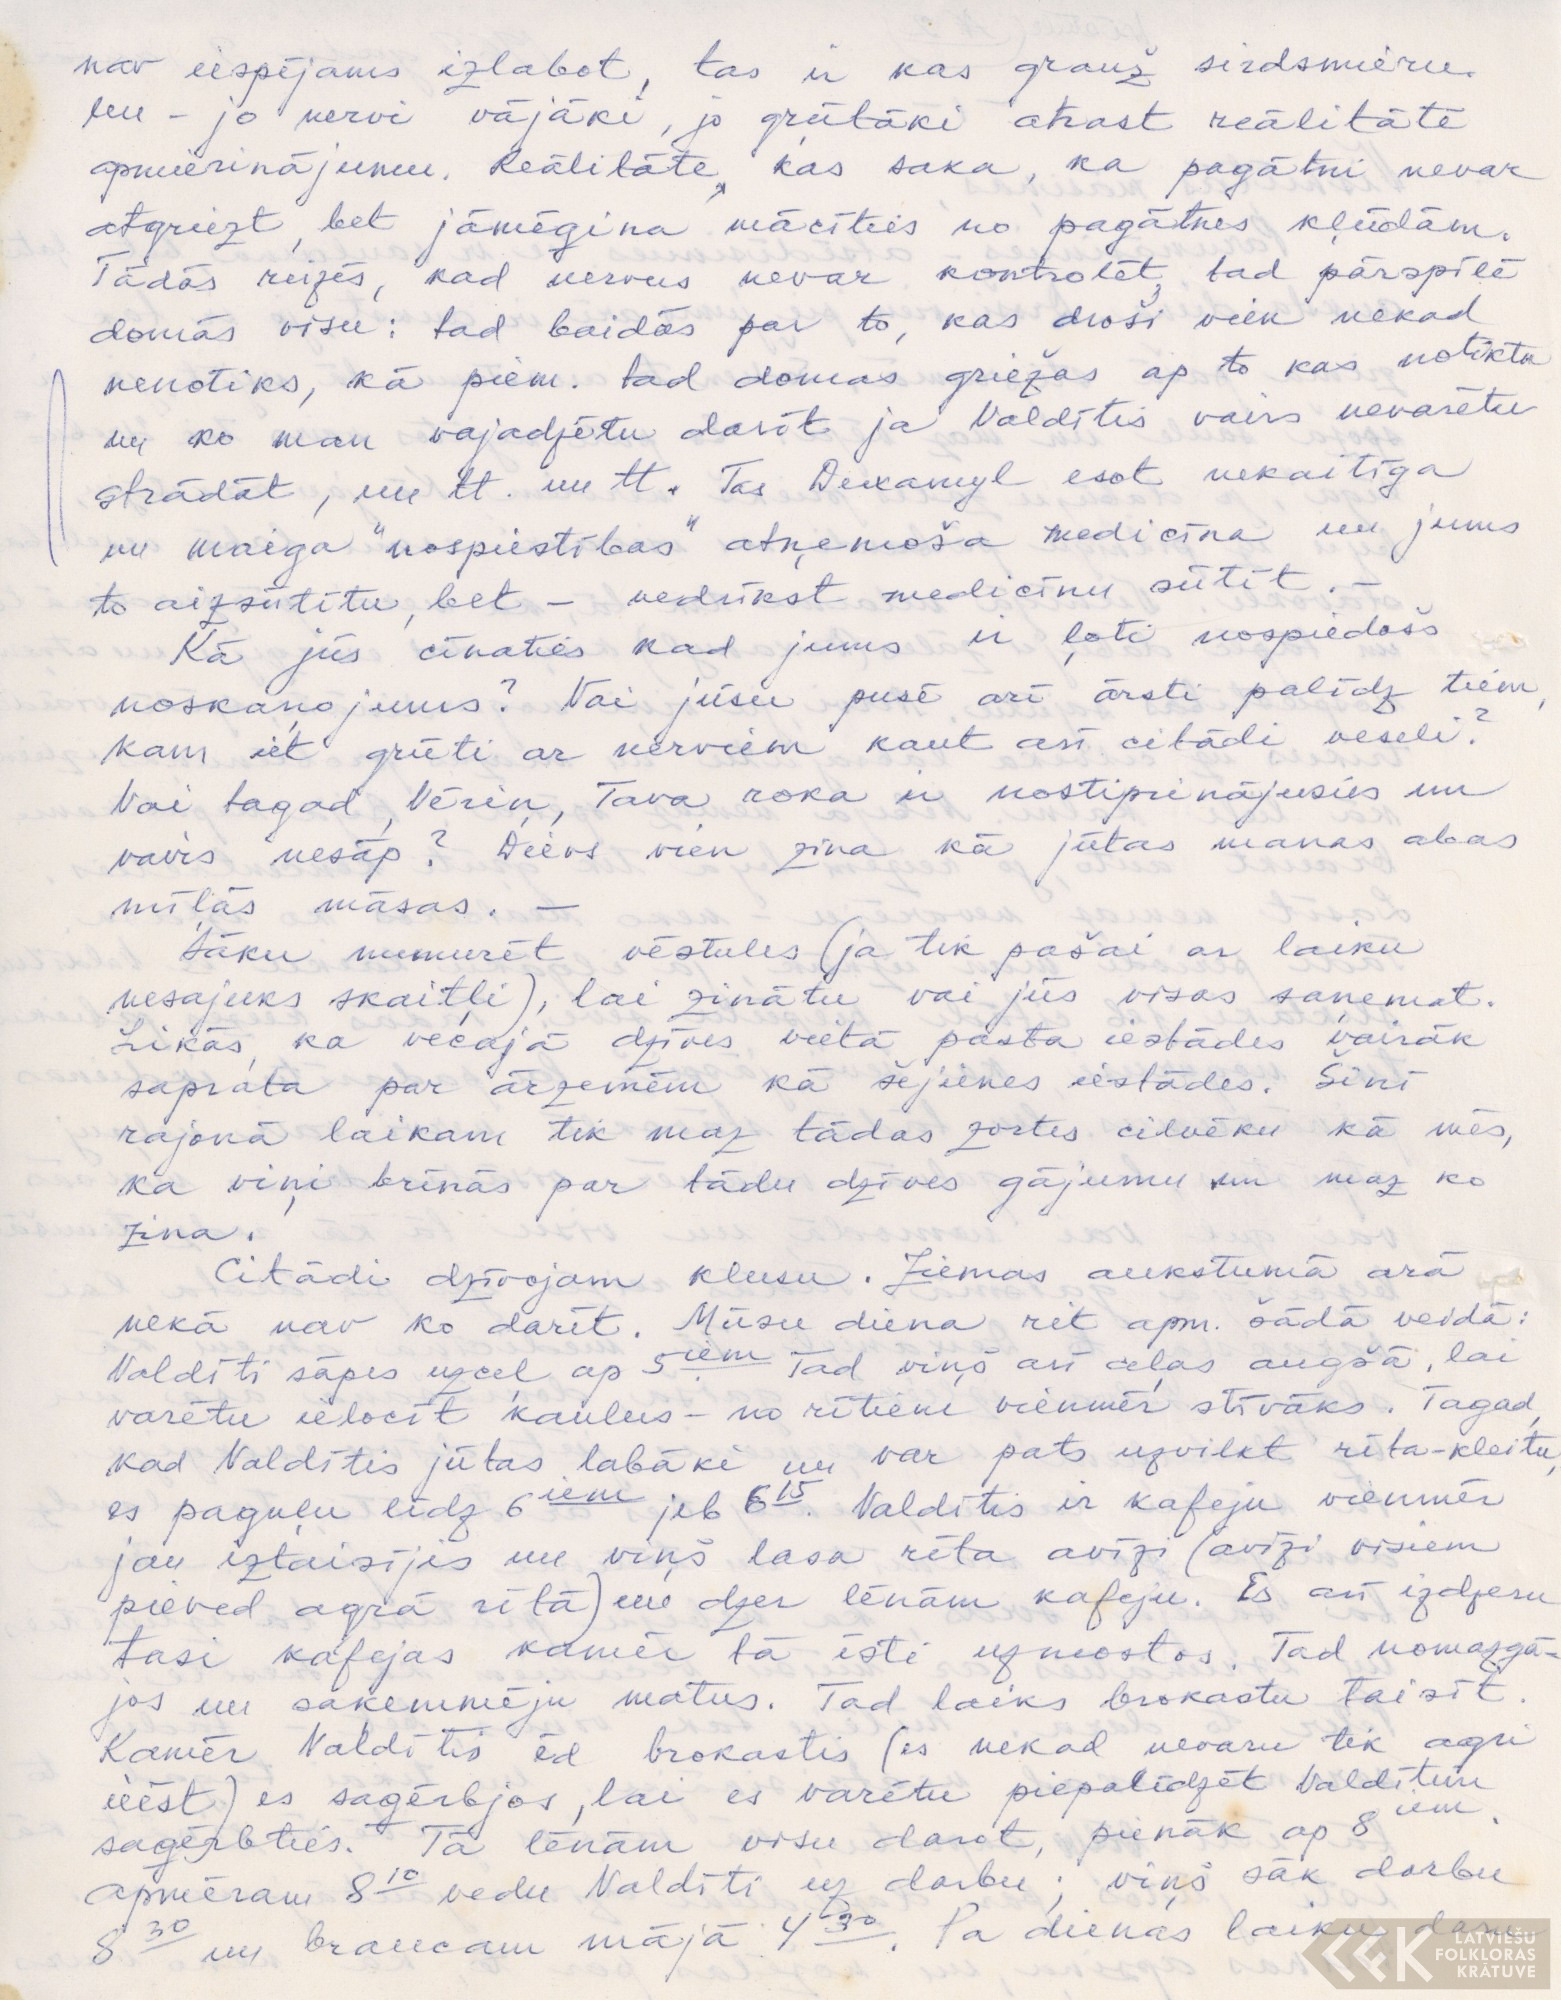 nav iespējams izlabot, tas ir kas grauž sirdsmieru.
un – jo nervi vājāki, jo grūtāki atrast reālitātē
apmierinājumu. Reālitāte, kas saka, ka pagātni nevar
atgriezt, bet jāmēgina mācīties no pagātnes kļūdām.
Tādās reizēs, kad nervus nevar kontrolēt, tad pārspīlē
domās visu: tad baidās par to, kas droši vien nekad
nenotiks, kā piem. tad domas griežas ap to kas notiktu
un ko man vajadzētu darīt ja Valdītis vairs nevarētu
strādāt, un tt. un tt. Tas Dexamyl esot nekaitīga
un maiga "nospiestības" atņemoša medicīna un jums
to aizsūtītu, bet – nedrīkst medicīnu sūtīt. –
Kā jūs cīnaties kad jums ir ļoti nospiedošs
noskaņojums? Vai jūsu pusē arī ārsti palīdz tiem,
kam iet grūti ar nerviem kaut arī citādi veseli?
Vai tagad, Vēriņ, Tava roka ir nostiprinājusies un
vairs nesāp? Dievs vien zina kā jūtas manas abas
mīļās māsas. –
Sāku numurēt vēstules (ja tik pašai ar laiku
nesajuks skaitļi), lai zinātu vai jūs visas saņemat.
Likās, ka vecajā dzīves vietā pasta iestādes vairāk
saprata par ārzemēm kā šejienes iestādes. Šinī
rajonā laikam tik maz tādas zortes cilvēku kā mēs,
ka viņi brīnās par tādu dzīves gājumu un maz ko
zina.
Citādi dzīvojam klusu. Ziemas aukstumā ārā
nekā nav ko darīt. Mūsu diena rit apm. šādā veidā:
Valdīti sāpes uzceļ ap 5iem Tad viņš arī ceļas augšā, lai
varētu ielocīt kaulus – no rītiem vienmēr stīvāks. Tagad,
kad Valdītis jūtas labāki un var pats uzvilkt rīta-kleitu,
es paguļu līdz 6iem jeb 6 15. Valdītis ir kafeju vienmēr
jau iztaisījis un viņš lasa rīta avīzi (avīzi visiem
pieved agrā rītā) un dzer lēnām kafeju. Es arī izdzeru
tasi kafejas kamēr tā īsti uzmostos. Tad nomazgā-
jos un sakemmēju matus. Tad laiks brokastu taisīt.
Kamēr Valdītis ēd brokastis (es nekad nevaru tik agri
ieēst) es sagērbjos, lai es varētu piepalīdzēt Valdītim
sagērbties. Tā lēnām visu darot, pienāk ap 8iem.
apmēram 8 10 vedu Valdīti uz darbu; viņš sāk darbu
8 30 un braucam mājā 4 30. Pa dienas laiku daru
LATVIEŠU
FOLKLORAS
KRĀTUVE